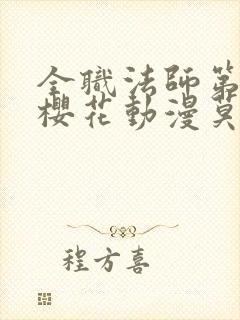 全職法師第
櫻花動漫莫
程方喜